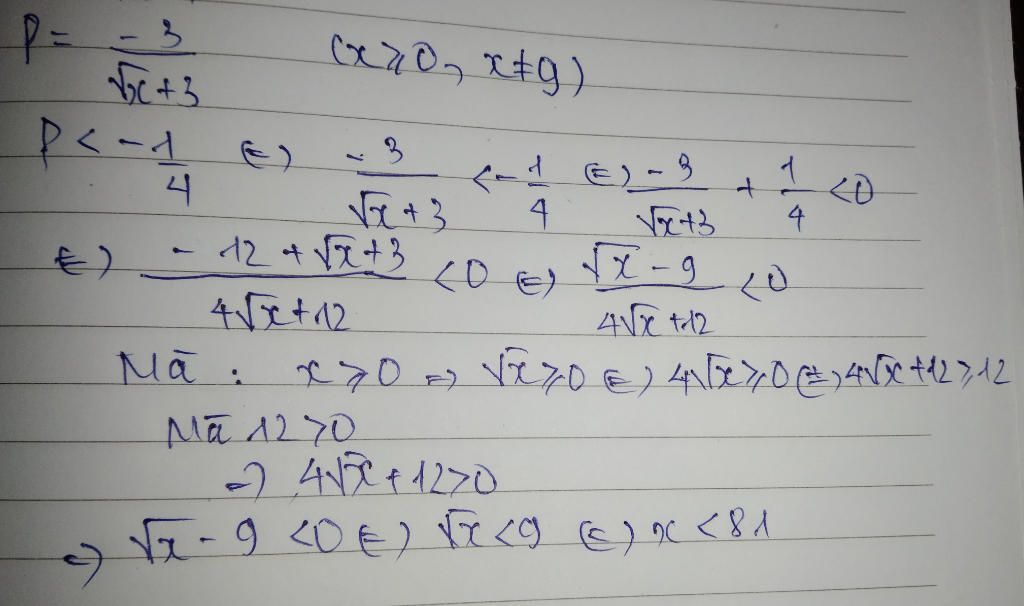 P = -3/(√x+3) (x ≥ 0, x ≠ 9)
P < -1/4 ⇔ -3/(√x+3) < -1/4 ⇔ -3/(√x+3) + 1/4 < 0
⇔ (-12 + √x+3)/(4√x+12) < 0 ⇔ (√x-9)/(4√x+12) < 0
Mā : x ≥ 0 ⇒ √x ≥ 0 ⇔ 4√x ≥ 0 ⇔ 4√x+12 ≥ 12
Mā 12 > 0
⇒ 4√x+12 > 0
⇒ √x-9 < 0 ⇔ √x < 9 ⇔ x < 81